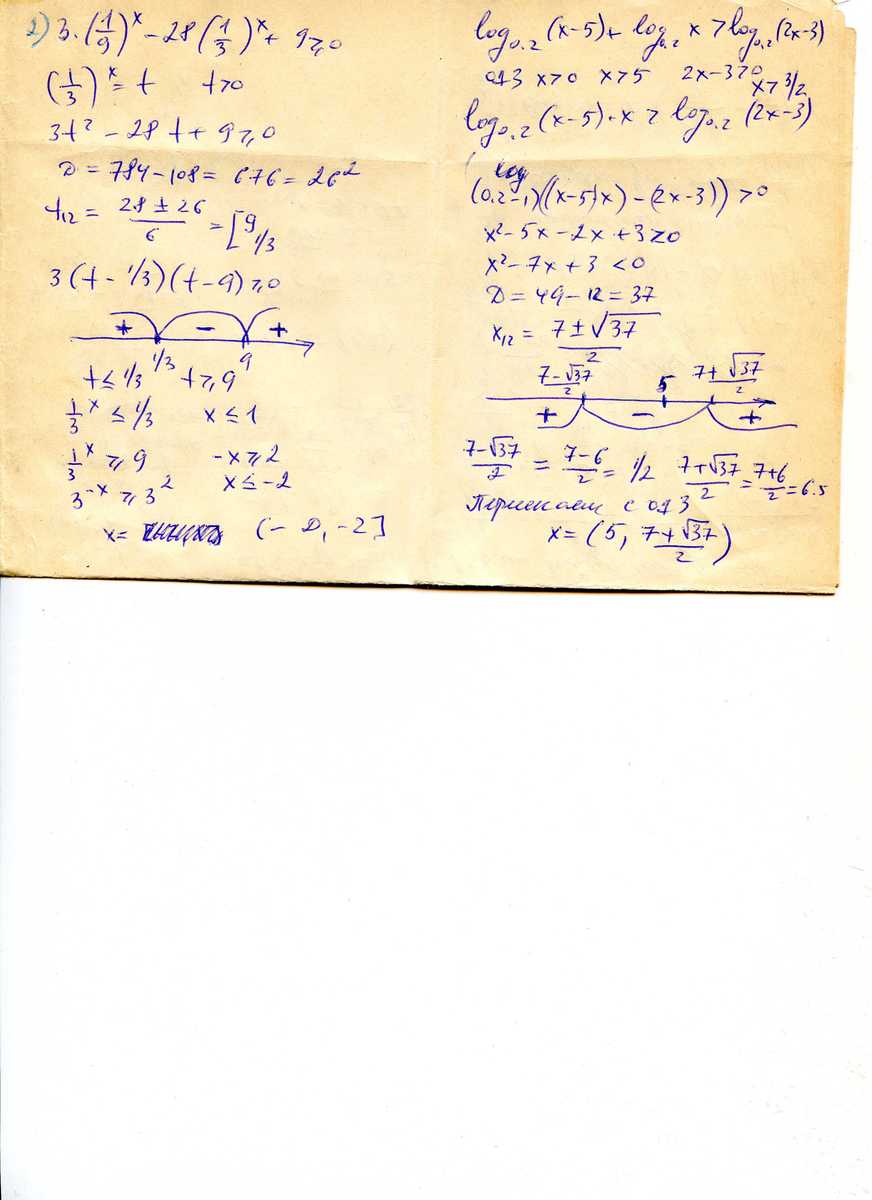 2) 3·(1/9)^x - 28(1/3)^x + 9 ≥ 0
(1/3)^x = t   t>0
3t² - 28t + 9 ≥ 0
D = 784 - 108 = 676 = 26²
t₁₂ = (28 ± 26)/6 = [9 1/3
3(t - 1/3)(t - 9) ≥ 0
+ - +
1/3 9
t ≤ 1/3   t ≥ 9
1/3^x ≤ 1/3   x ≤ 1
1/3^x ≥ 9   -x ≥ 2
3^-x ≥ 3^2   x ≤ -2
x = (-∞, -2]
log₀.₂(x-5) + log₀.₂ x > log₀.₂(2x-3)
ОДЗ x>0   x>5   2x-3>0
x > 3/2
log₀.₂(x-5)·x > log₀.₂(2x-3)
(0.2-1)((x-5)x) - (2x-3)) > 0
x² - 5x - 2x + 3 > 0
x² - 7x + 3 < 0
D = 49 - 12 = 37
x₁₂ = (7 ± √37)/2
(7-√37)/2   5   (7+√37)/2
+ - +
(7-√37)/2 = (7-6)/2 = 1/2   (7+√37)/2 = (7+6)/2 = 6.5
с ОДЗ
x = (5, (7+√37)/2)